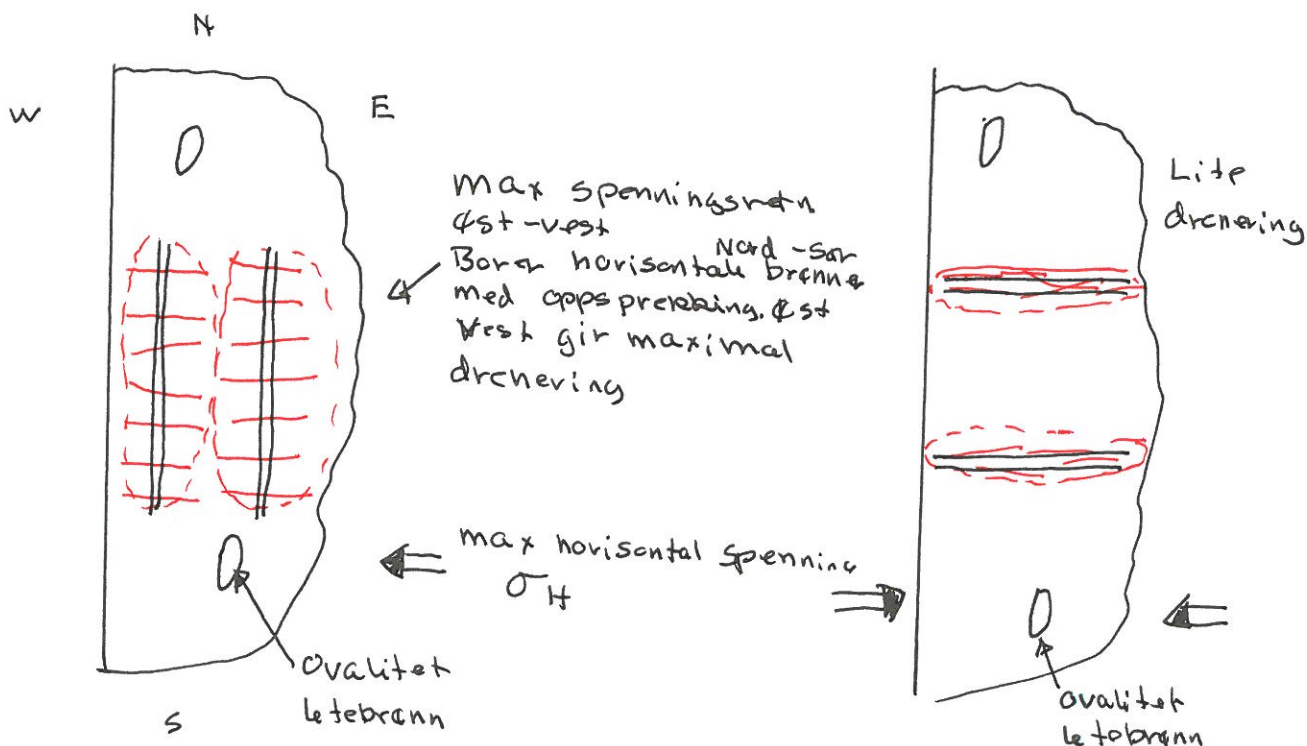 N
W
E
max spenningsretn
Øst-vest
Nord-Sør
Borer horisontale brønne
med oppsprekking. Øst
Vest gir maximal
drenering
Lite
drenering
max horisontal spenning
σH
Ovalitet
letebrønn
S
Ovalitet
letebrønn